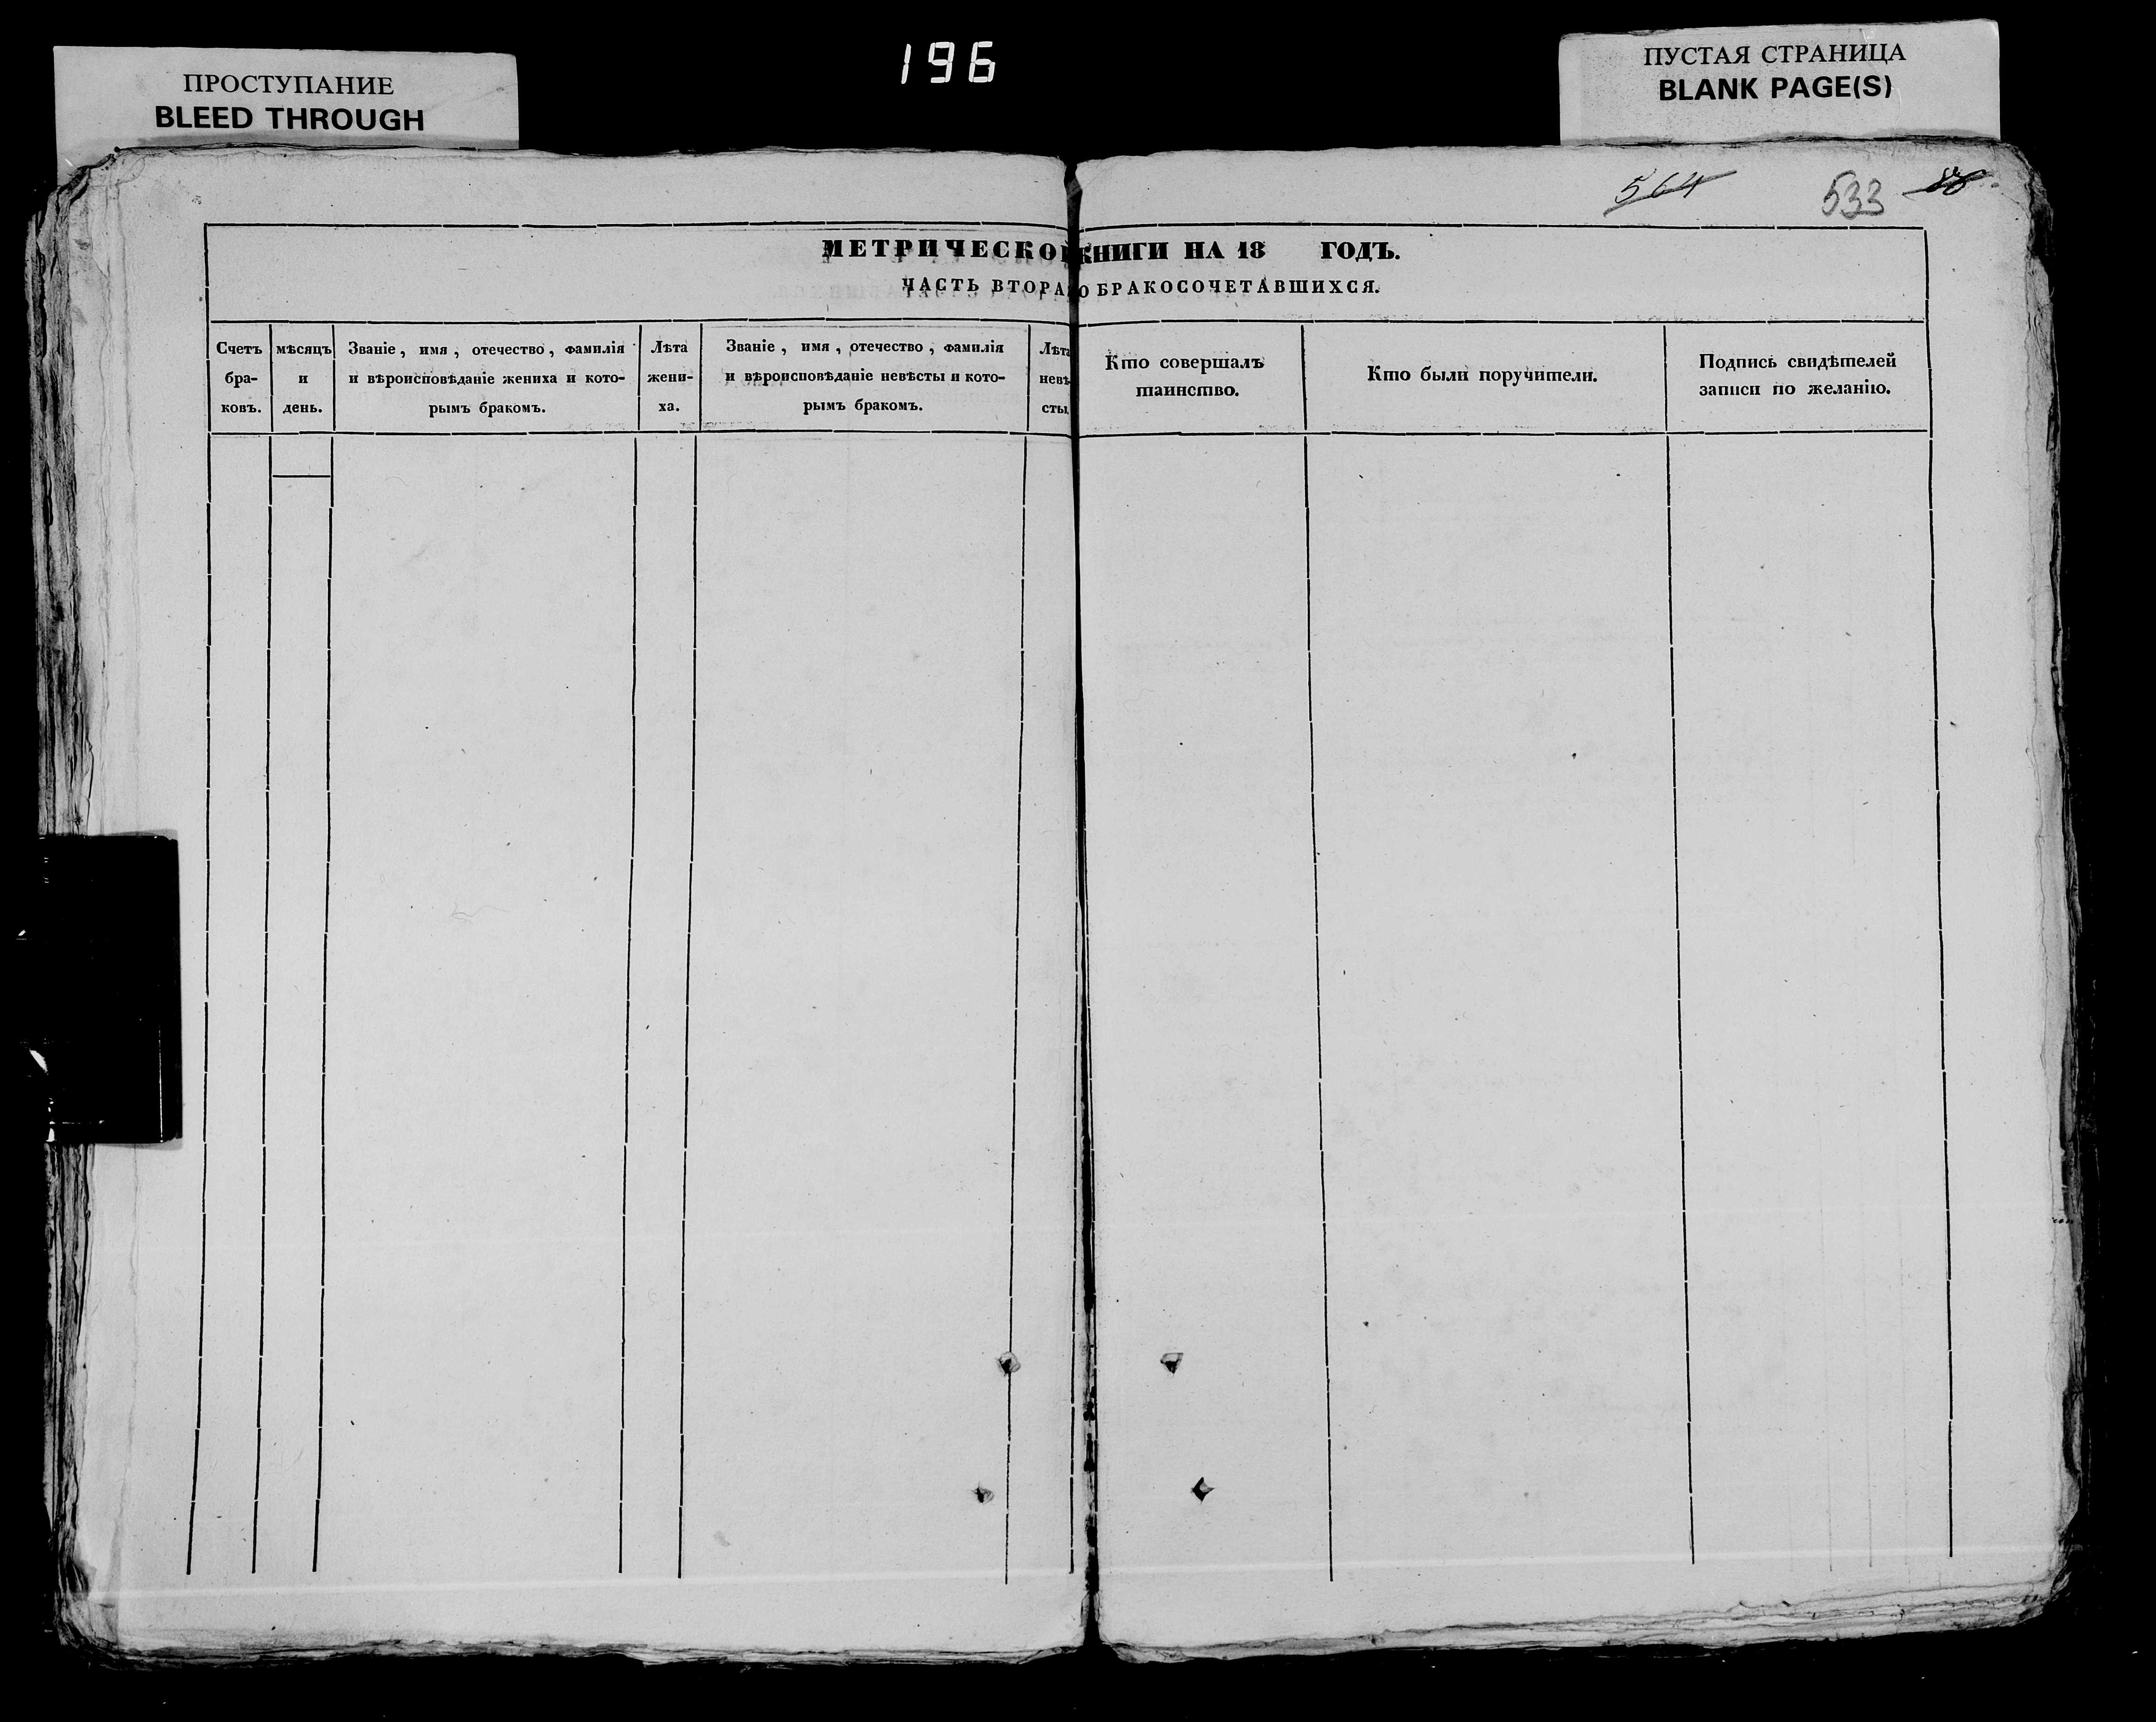 ПРОСТУПАНИЕ
BLEED THROUGH
196
ПУСТАЯ СТРАНИЦА
BLANK PAGE(S)
564 533
МЕТРИЧЕСКОЙ КНИГИ НА 18 ГОДЪ.
ЧАСТЬ ВТОРА О БРАКОСОЧЕТАВШИХСЯ.
Счетъ
бра-
ковъ.
мѣсяцъ
и
день.
Званіе, имя, отечество, фамилія
и вѣроисповѣданіе жениха и кото-
рымъ бракомъ.
Лѣта
жени-
ха.
Званіе, имя, отечество, фамилія
и вѣроисповѣданіе невѣсты и кото-
рымъ бракомъ.
Лѣта
невѣ
сты
Кто совершалъ
таинство.
Кто были поручители.
Подпись свидѣтелей
записи по желанію.